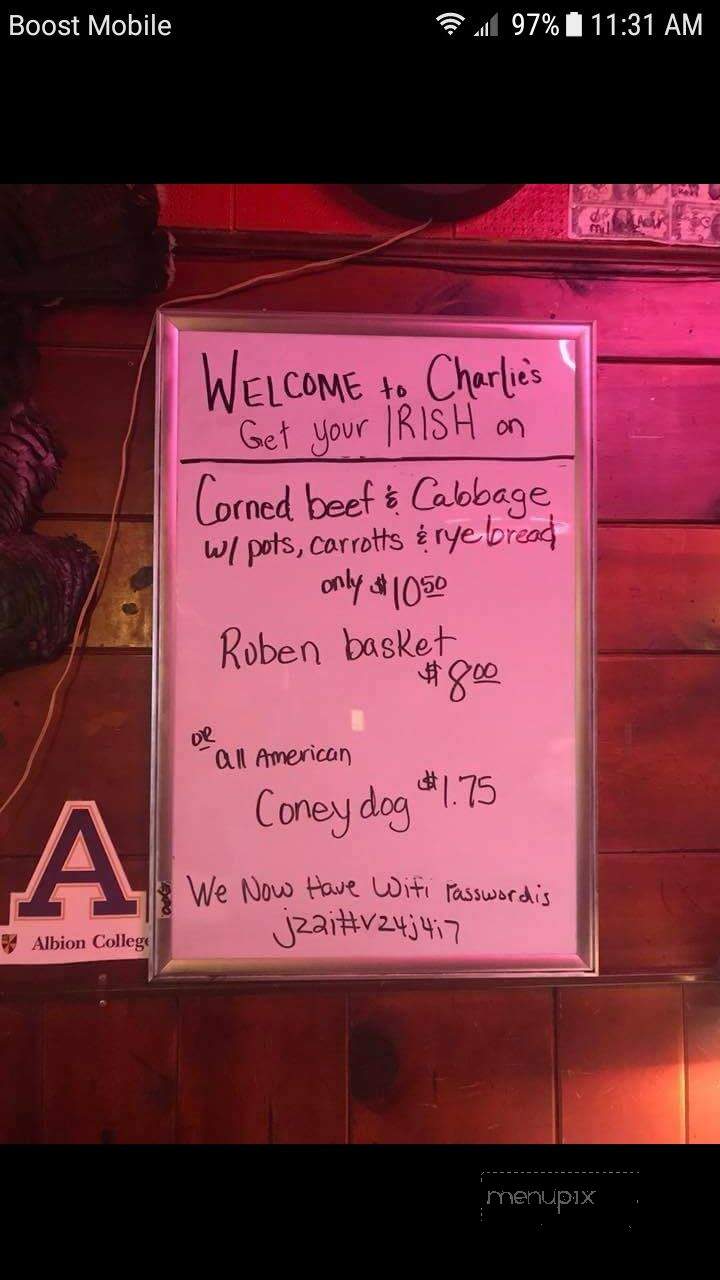 Boost Mobile 97% 11:31 AM
WELCOME to Charlie's
Get your IRISH on
Corned beef & Cabbage
w/ pots, carrotts & rye bread
only $10.50
Ruben basket
$8.00
OR
all American
Coney dog $1.75
We Now Have Wifi Passwordis
jz2i#vz4j4i7
A
Albion College
menupix